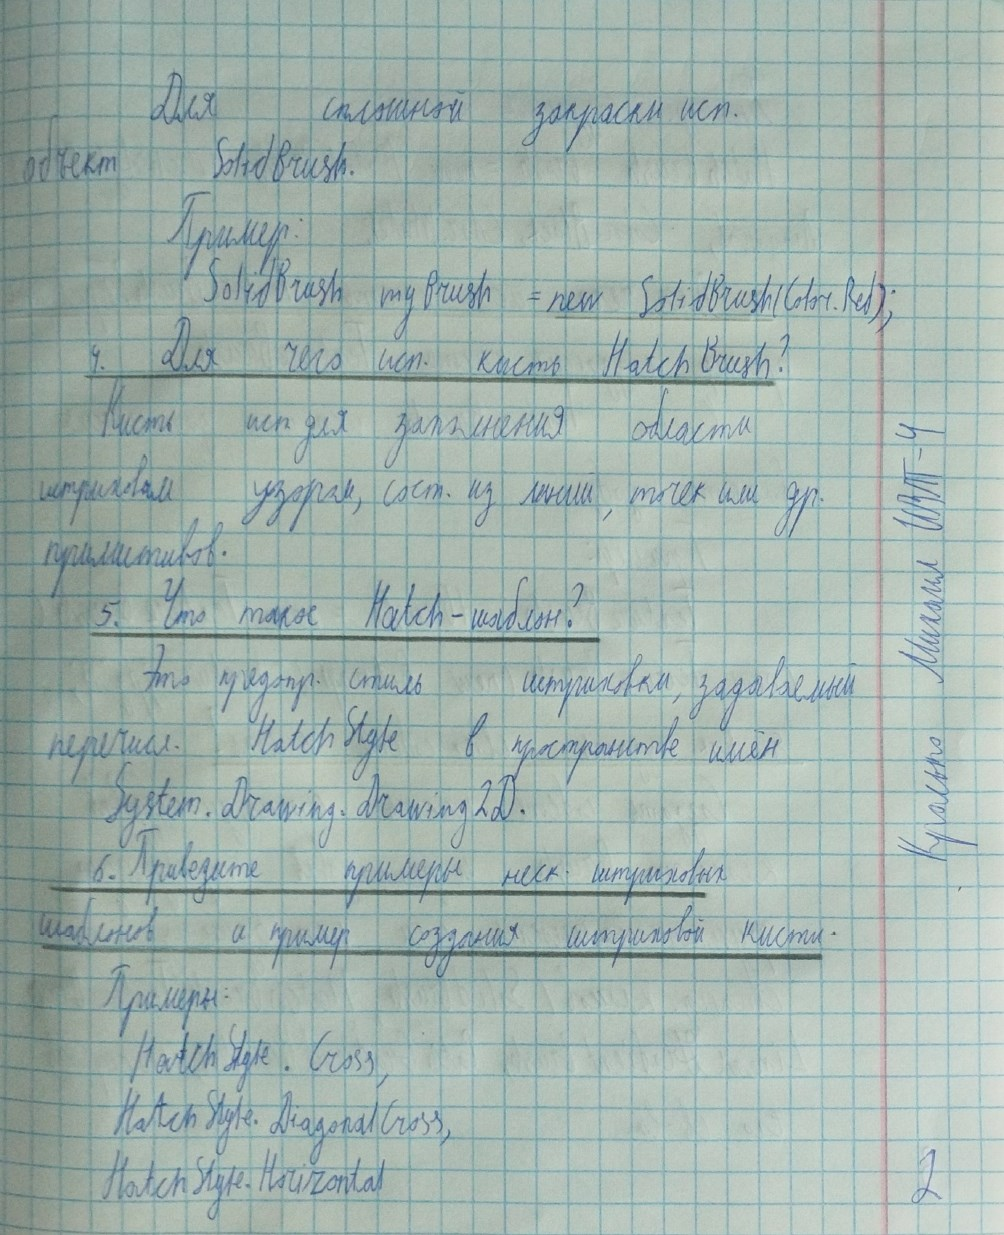 Для сплошной закраски исп.
объект SolidBrush.
Пример:
SolidBrush myBrush = new SolidBrush(Color.Red);
4. Для чего исп. кисть HatchBrush?
Кисть исп для заполнения области
штриховым узором, сост. из линий, точек или др.
примитивов.
5. Что такое Hatch-шаблон?
Это предопр. стиль штриховки, задаваемый
перечисл. HatchStyle в пространстве имён
System.Drawing.Drawing2D.
6. Приведите примеры неск. штриховых
шаблонов и пример создания штриховой кисти.
Примеры:
HatchStyle.Cross,
HatchStyle.DiagonalCross,
HatchStyle.Horizontal
Михаил
2